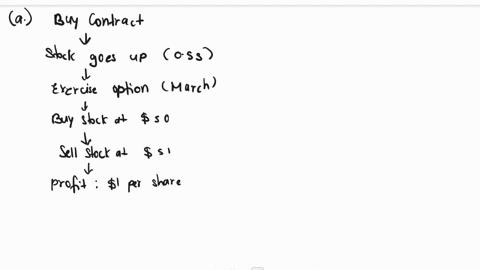 (a.) Buy Contract
↓
Stock goes up (0.55)
↓
Exercise option (March)
↓
Buy stock at $50
↓
Sell stock at $51
↓
profit : $1 per share